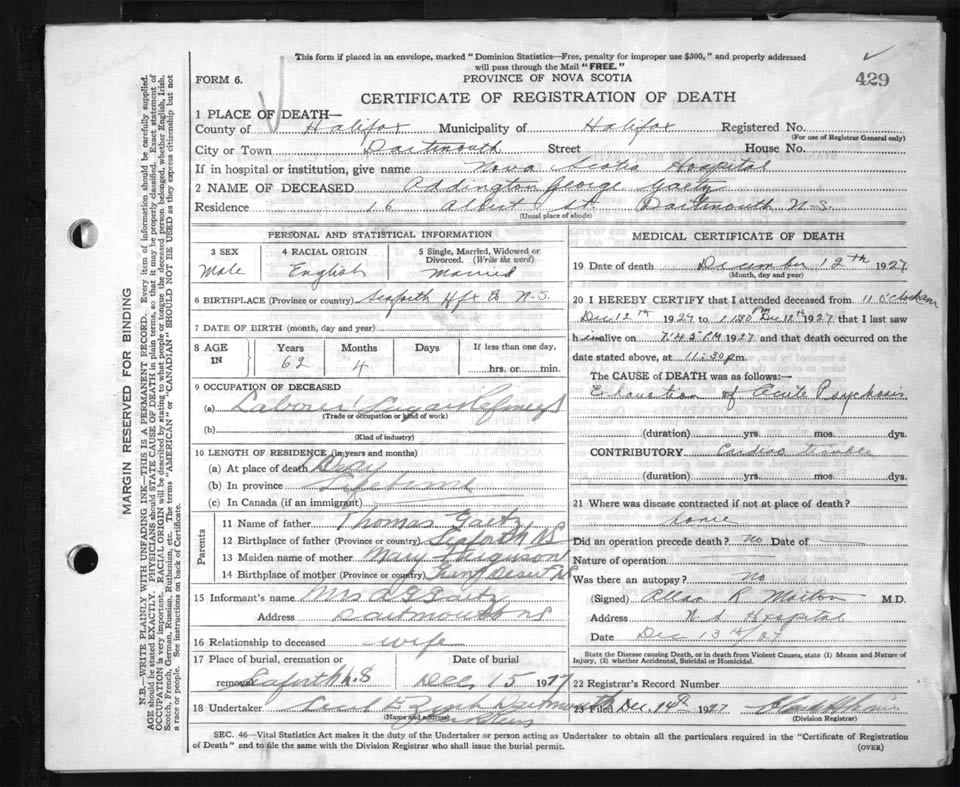 This form if placed in an envelope, marked "Dominion Statistics—Free, penalty for improper use $300," and properly addressed
will pass through the Mail "FREE."
429
FORM 6.
PROVINCE OF NOVA SCOTIA
CERTIFICATE OF REGISTRATION OF DEATH
1 PLACE OF DEATH—
County of Halifax Municipality of Halifax Registered No.
(For use of Registrar General only)
City or Town Dartmouth Street House No.
If in hospital or institution, give name Nova Scotia Hospital
2 NAME OF DECEASED Addington George Gaetz
Residence 16 Albert St. Dartmouth N.S.
(Usual place of abode)
PERSONAL AND STATISTICAL INFORMATION
3 SEX 4 RACIAL ORIGIN 5 Single, Married, Widowed or
Divorced. (Write the word)
Male English Married
6 BIRTHPLACE (Province or country) Seaforth Hfx Co N.S.
7 DATE OF BIRTH (month, day and year)
8 AGE IN Years Months Days If less than one day,
62 4 hrs. or min.
9 OCCUPATION OF DECEASED
(a) Laborer Sugar Refinery
(Trade or occupation or kind of work)
(b)
(Kind of industry)
10 LENGTH OF RESIDENCE (in years and months)
(a) At place of death Day
(b) In province Lifetime
(c) In Canada (if an immigrant)
Parents
11 Name of father Thomas Gaetz
12 Birthplace of father (Province or country) Seaforth NS
13 Maiden name of mother Mary Ferguson
14 Birthplace of mother (Province or country) Desert NS
15 Informant's name Mrs A G Gaetz
Address Dartmouth NS
16 Relationship to deceased wife
17 Place of burial, cremation or Date of burial
removal Seaforth N.S Dec 15 1927
18 Undertaker Dartmouth
(Name and address)
MEDICAL CERTIFICATE OF DEATH
19 Date of death December 12th 1927
(Month, day and year)
20 I HEREBY CERTIFY that I attended deceased from 11 o'clock am
Dec 12th 1927 to 11:30 PM Dec 12th 1927 that I last saw
him alive on 7:45 PM 1927 and that death occurred on the
date stated above, at 11:30 p.m.
The CAUSE of DEATH was as follows:—
Exhaustion of Acute Psychosis
(duration) yrs. mos. dys.
CONTRIBUTORY Cardiac trouble
(duration) yrs. mos. dys.
21 Where was disease contracted if not at place of death?
Did an operation precede death? No Date of
Nature of operation
Was there an autopsy? No
(Signed) Allan R Morton M.D.
Address N.S Hospital
Date Dec 13th/27
State the Disease causing Death, or in death from Violent Causes, state (1) Means and Nature of
Injury, (2) whether Accidental, Suicidal or Homicidal.
22 Registrar's Record Number
23 Filed Dec. 14th 1927
(Division Registrar)
SEC. 46—Vital Statistics Act makes it the duty of the Undertaker or person acting as Undertaker to obtain all the particulars required in the "Certificate of Registration
of Death" and to file the same with the Division Registrar who shall issue the burial permit.
(OVER)
MARGIN RESERVED FOR BINDING
N.B.—WRITE PLAINLY WITH UNFADING INK—THIS IS A PERMANENT RECORD. Every item of information should be carefully supplied.
AGE should be stated EXACTLY. PHYSICIANS should STATE CAUSE OF DEATH in plain terms, so that it may be properly classified. Exact statement of
OCCUPATION is very important. RACIAL ORIGIN will be described by stating to what people or tongue the deceased person belonged, whether English, Irish,
Scotch, French, German, Russian, Ruthenian, etc. The terms "AMERICAN" or "CANADIAN" SHOULD NOT BE USED as they express citizenship but not
a race or people. See instructions on back of Certificate.